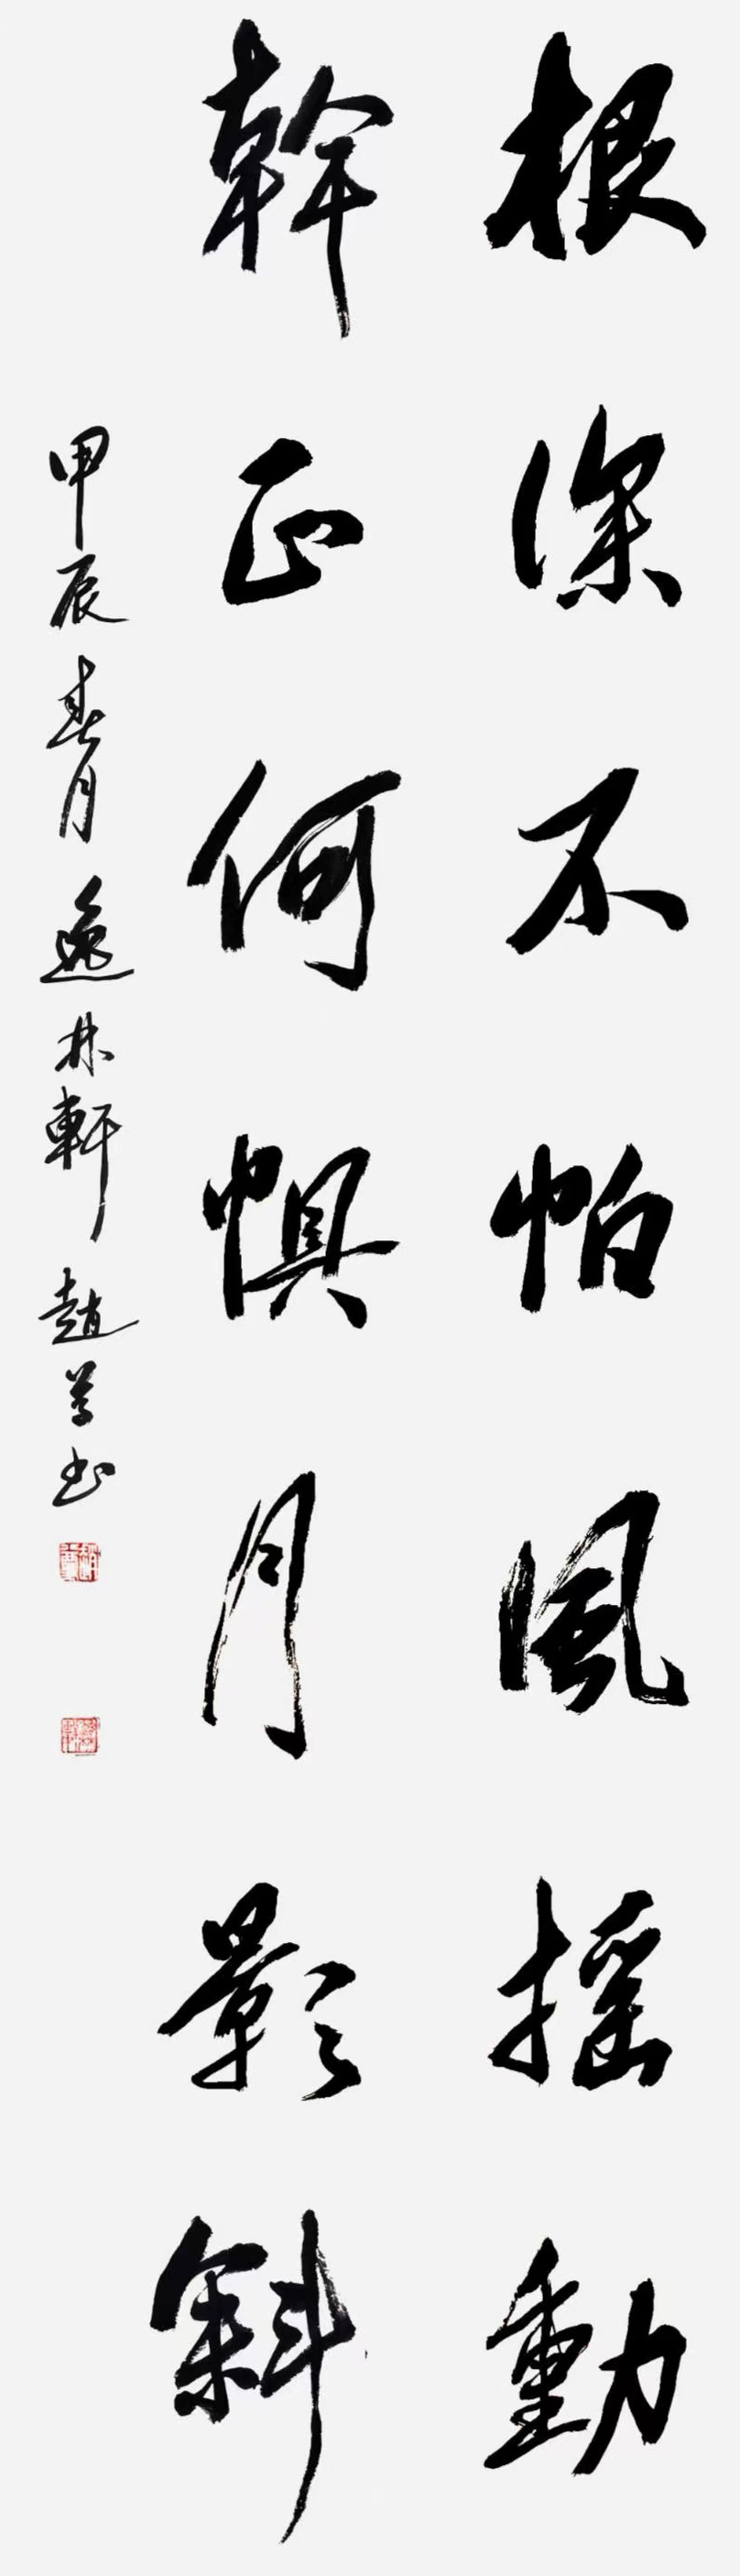 根深不怕風摇動
幹正何懼月影斜
甲辰春月逸林軒趙
書